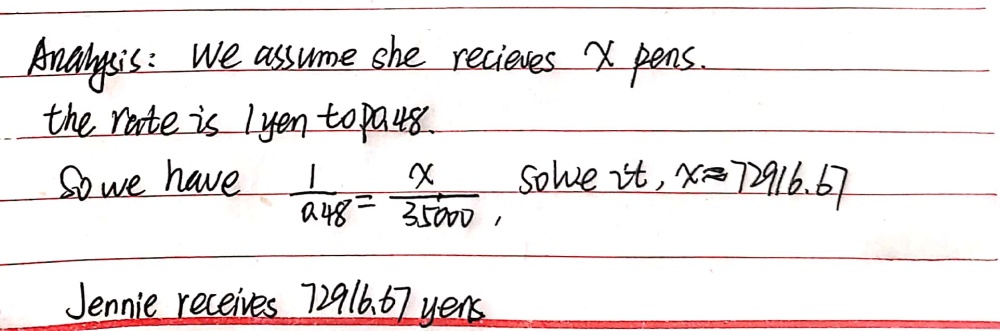 Analysis: We assume she recieves x yens.
the rate is 1 yen to P0.48.
So we have 1/0.48 = x/35000, solve it, x≈72916.67
Jennie receives 72916.67 yens